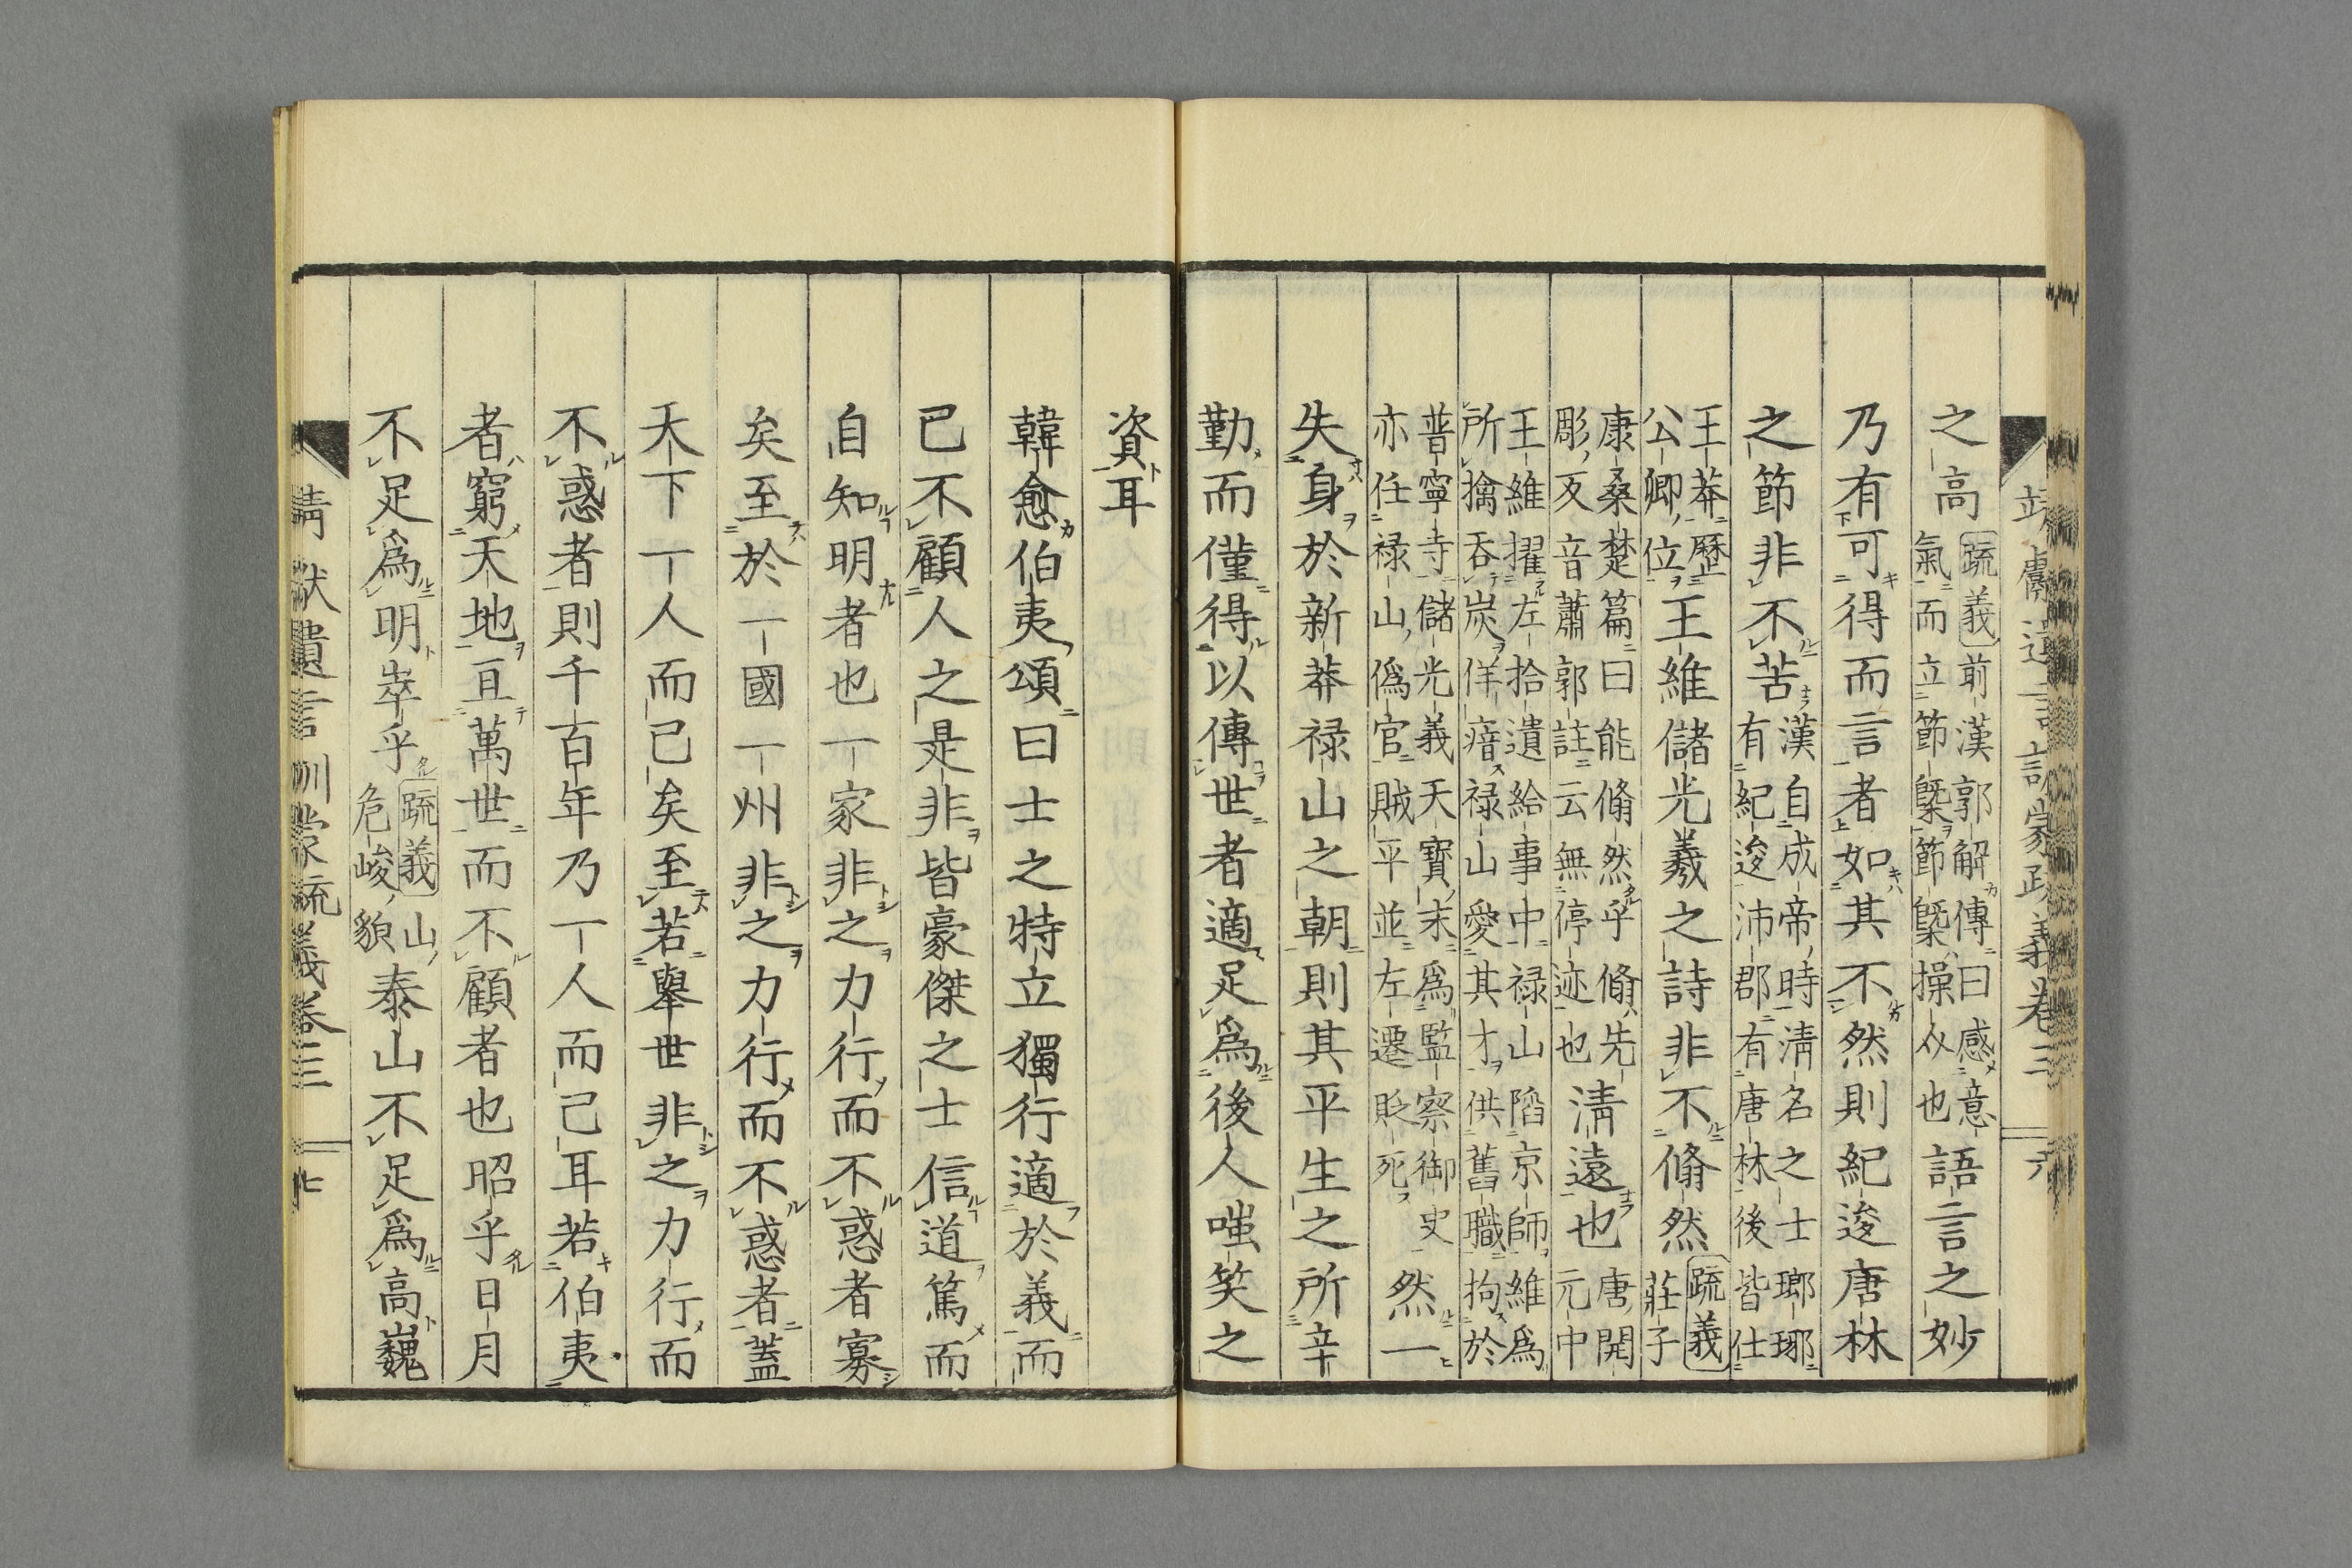 之高疏義前漢郭解傳曰感意
氣而立節槩節槩操仌也語言之妙
乃有可得而言者如其不然則紀逡唐林
之節非不苦漢自成帝時淸名之士瑯琊
有紀逡沛郡有唐林後皆仕
王莽歷
公卿位王維儲光羲之詩非不翛然疏義
莊子
康桑楚篇曰能翛然乎翛先
彫反音蕭郭註云無停迹也淸遠也唐開
元中
王維擢左拾遺給事中禄山陷京師維爲
所擒吞炭佯瘖禄山愛其才供舊職拘於
普寧寺儲光義天寶末爲監察御史
亦任禄山僞官賊平並左遷貶死然一
失身於新莽禄山之朝則其平生之所辛
勤而僅得以傳世者適足爲後人嗤笑之
資耳
韓愈伯夷頌曰士之特立獨行適於義而
已不顧人之是非皆豪傑之士信道篤而
自知明者也一家非之力行而不惑者寡
矣至於一國一州非之力行而不惑者蓋
天下一人而已矣至若舉世非之力行而
不惑者則千百年乃一人而已耳若伯夷
者窮天地亘萬世而不顧者也昭乎日月
不足爲明崒乎疏義山
危峻貌泰山不足爲高巍
靖獻遺言訓蒙疏義卷三
七